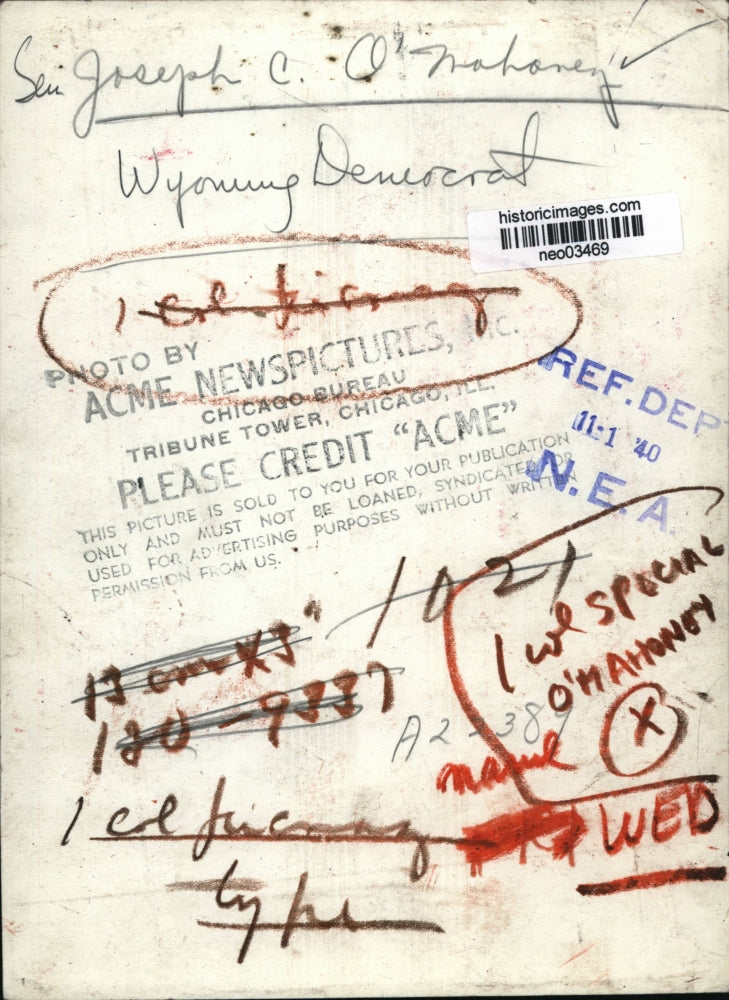 Sen Joseph C. O'Mahoney ✓
Wyoming Democrat
historicimages.com
neo03469
1 col
PHOTO BY
ACME NEWSPICTURES, INC.
CHICAGO BUREAU
TRIBUNE TOWER, CHICAGO, ILL.
PLEASE CREDIT "ACME"
THIS PICTURE IS SOLD TO YOU FOR YOUR PUBLICATION
ONLY AND MUST NOT BE LOANED, SYNDICATED OR
USED FOR ADVERTISING PURPOSES WITHOUT WRITTEN
PERMISSION FROM US.
REF. DEPT
11-1 '40
N. E. A.
1021
1 col SPECIAL
O'MAHONEY
X
13 cm X 3"
180-9337
A22389
WED
1 col
type